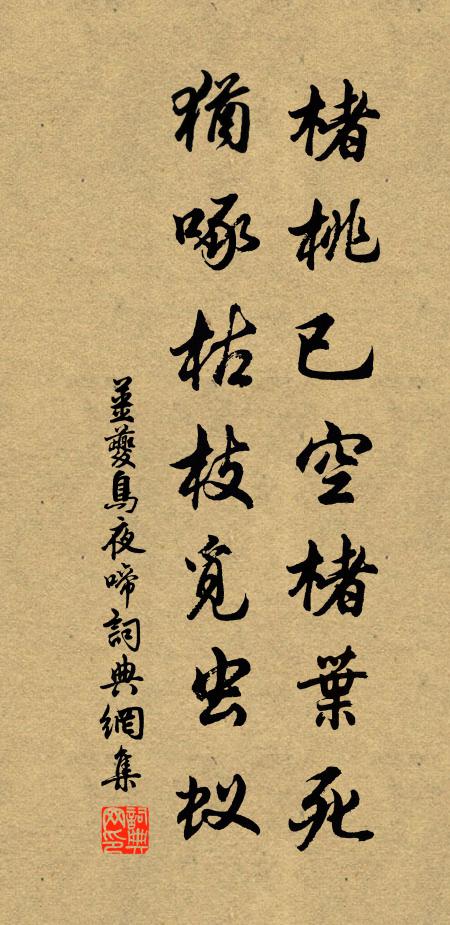 楮桃已空楮葉死
猶啄枯枝覓虫蚁
姜夔烏夜啼詞典網集
詞典網印